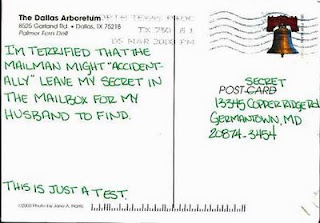 The Dallas Arboretum
8525 Garland Rd. • Dallas, TX 75218
Palmer Fern Dell
NORTH TEXAS P&DC
TX 750 1
05 MAR 2008 PM
I'M TERRIFIED THAT THE
MAILMAN MIGHT "ACCIDENT-
ALLY" LEAVE MY SECRET IN
THE MAILBOX FOR MY
HUSBAND TO FIND.
THIS IS JUST A TEST.
©2003 Photo by
SECRET
POST CARD
13345 COPPER RIDGE RD
GERMANTOWN, MD
20874-3454